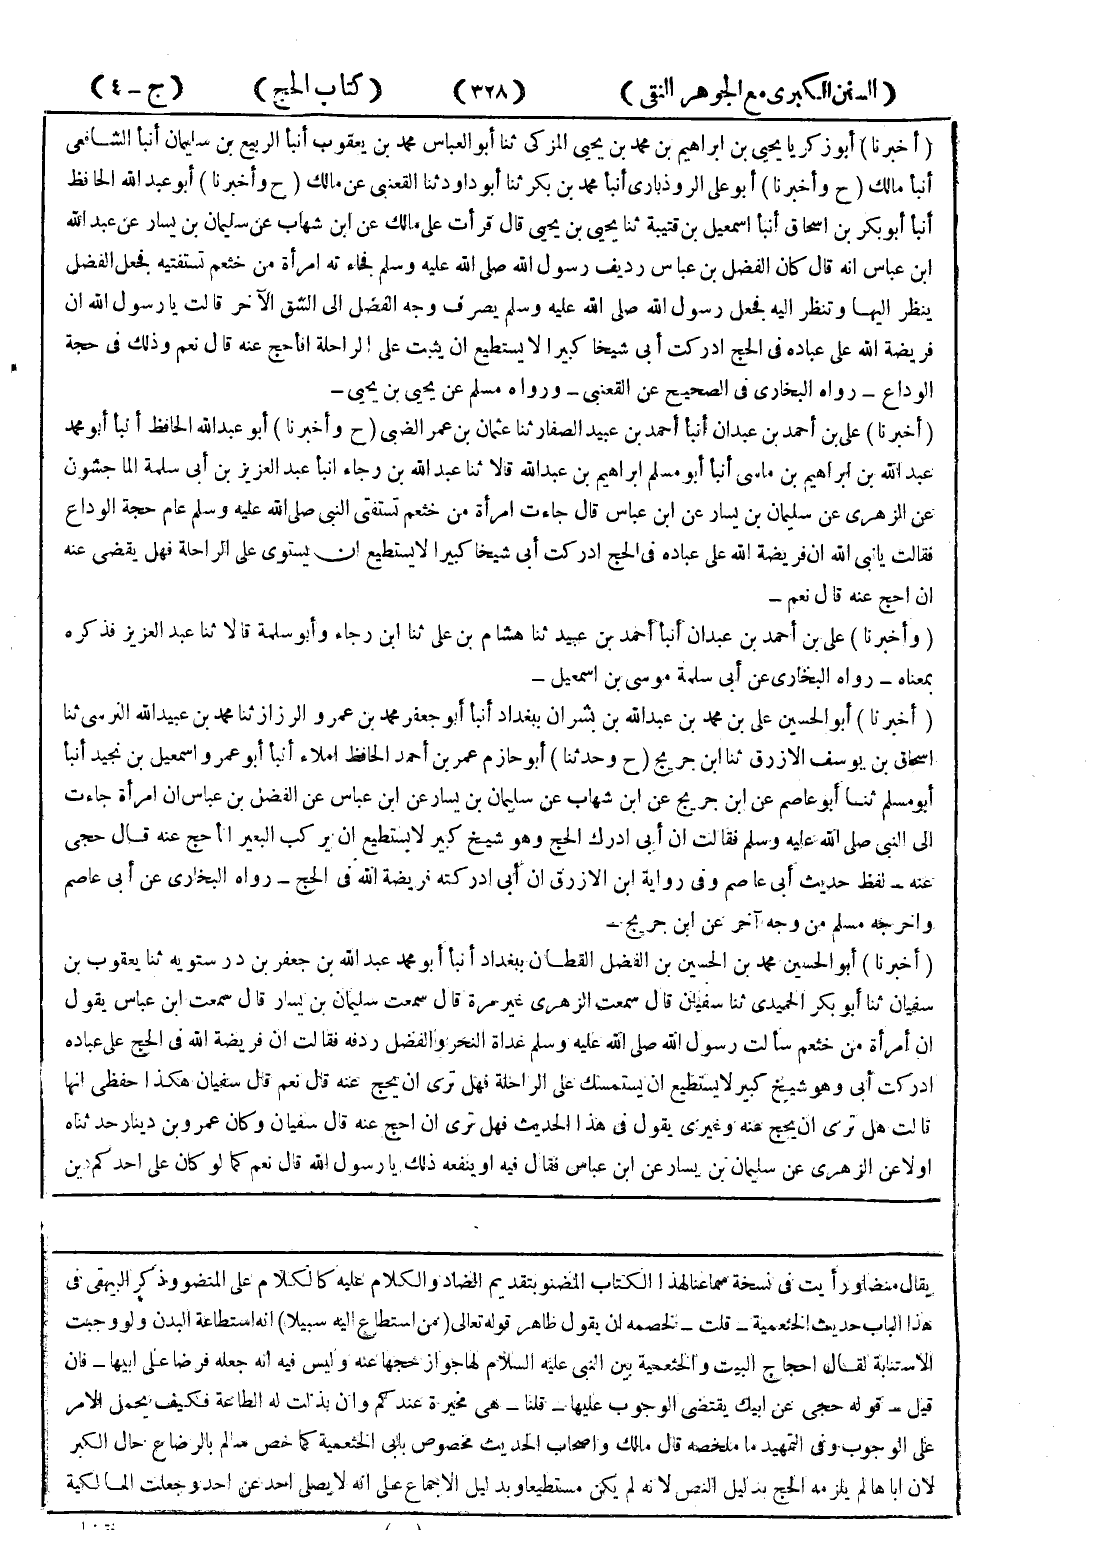 (السنن الكبرى مع الجوهر النقى) (٣٢٨) (كتاب الحج) (ج - ٤)
( أخبرنا ) أبو زكريا يحيى بن ابراهيم بن محمد بن يحيى المزكى ثنا أبو العباس محمد بن يعقوب أنبأ الربيع بن سليمان أنبأ الشافعى
أنبأ مالك ( ح وأخبرنا ) أبو على الروذبارى أنبأ محمد بن بكر ثنا أبو داود ثنا القعنبى عن مالك ( ح وأخبرنا ) أبو عبد الله الحافظ
أنبأ أبو بكر بن اسحاق أنبأ اسمعيل بن قتيبة ثنا يحيى بن يحيى قال قرأت على مالك عن ابن شهاب عن سليمان بن يسار عن عبد الله
ابن عباس انه قال كان الفضل بن عباس رديف رسول الله صلى الله عليه وسلم فجاء ته امرأة من خثعم تستفتيه فجعل الفضل
ينظر اليها وتنظر اليه فجعل رسول الله صلى الله عليه وسلم يصرف وجه الفضل الى الشق الآخر قالت يا رسول الله ان
فريضة الله على عباده فى الحج ادركت أبى شيخا كبيرا لا يستطيع ان يثبت على الراحلة افأحج عنه قال نعم وذلك فى حجة
الوداع - رواه البخارى فى الصحيح عن القعنبى - ورواه مسلم عن يحيى بن يحيى -
( أخبرنا ) على بن أحمد بن عبدان أنبأ أحمد بن عبيد الصفار ثنا عثمان بن عمر الضبى ( ح وأخبرنا ) أبو عبد الله الحافظ أنبأ أبو محمد
عبد الله بن ابراهيم بن ماسى أنبأ أبو مسلم ابراهيم بن عبد الله قالا ثنا عبد الله بن رجاء انبأ عبد العزيز بن أبى سلمة الماجشون
عن الزهرى عن سليمان بن يسار عن ابن عباس قال جاءت امرأة من خثعم تستفتى النبى صلى الله عليه وسلم عام حجة الوداع
فقالت يا نبى الله ان فريضة الله على عباده فى الحج ادركت أبى شيخا كبيرا لا يستطيع ان يستوى على الراحلة فهل يقضى عنه
ان احج عنه قال نعم -
( وأخبرنا ) على بن أحمد بن عبدان أنبأ أحمد بن عبيد ثنا هشام بن على ثنا ابن رجاء وأبو سلمة قالا ثنا عبد العزيز فذكره
بمعناه - رواه البخارى عن أبى سلمة موسى بن اسمعيل -
( أخبرنا ) أبو الحسين على بن محمد بن عبد الله بن بشران ببغداد أنبأ أبو جعفر محمد بن عمرو الرزاز ثنا محمد بن عبيد الله النرسى ثنا
اسحاق بن يوسف الازرق ثنا ابن جريج ( ح وحدثنا ) أبو حازم عمر بن أحمد الحافظ املاء أنبأ أبو عمرو اسمعيل بن نجيد أنبأ
أبو مسلم ثنا أبو عاصم عن ابن جريج عن ابن شهاب عن سليمان بن يسار عن ابن عباس عن الفضل بن عباس ان امرأة جاءت
الى النبى صلى الله عليه وسلم فقالت ان أبى ادرك الحج وهو شيخ كبير لا يستطيع ان يركب البعير أفأحج عنه قال حجى
عنه - لفظ حديث أبى عاصم وفى رواية ابن الازرق ان أبى ادركته فريضة الله فى الحج - رواه البخارى عن أبى عاصم
واخرجه مسلم من وجه آخر عن ابن جريج -
( أخبرنا ) أبو الحسين محمد بن الحسين بن الفضل القطان ببغداد أنبأ أبو محمد عبد الله بن جعفر بن درستويه ثنا يعقوب بن
سفيان ثنا أبو بكر الحميدى ثنا سفيان قال سمعت الزهرى غير مرة قال سمعت سليمان بن يسار قال سمعت ابن عباس يقول
ان أمرأة من خثعم سألت رسول الله صلى الله عليه وسلم غداة النحر والفضل ردفه فقالت ان فريضة الله فى الحج على عباده
ادركت أبى وهو شيخ كبير لا يستطيع ان يستمسك على الراحلة فهل ترى ان يحج عنه قال نعم قال سفيان هكذا حفظى انها
قالت هل ترى ان يحج عنه وغيرى يقول فى هذا الحديث فهل ترى ان احج عنه قال سفيان وكان عمرو بن دينار حدثناه
اولا عن الزهرى عن سليمان بن يسار عن ابن عباس فقال فيه او ينفعه ذلك يا رسول الله قال نعم كما لو كان على احدكم دين
يقال منضاو رأيت فى نسخة سماعنا لهذا الكتاب المضنو بتقديم الضاد والكلام عليه كالكلام على المنضو وذكر البيهقى فى
هذا الباب حديث الخثعمية - قلت - لخصمه ان يقول ظاهر قوله تعالى (من استطاع اليه سبيلا) انه استطاعة البدن ولو وجبت
الاستنابة لقال احجاج البيت والخثعمية بين النبى عليه السلام لها جواز حجها عنه وليس فيه انه جعله فرضا على ابيها - فان
قيل - قوله حجى عن ابيك يقتضى الوجوب عليها - قلنا - هى مخيرة عندكم وان بذلت له الطاعة فكيف يحمل الامر
على الوجوب وفى التمهيد ما ملخصه قال مالك واصحاب الحديث مخصوص بابى الخثعمية كما خص سالم بالرضاع حال الكبر
لان اباها لم يلزمه الحج بدليل النص لانه لم يكن مستطيعا وبدليل الاجماع على انه لا يصلى احد عن احد وجعلت المالكية